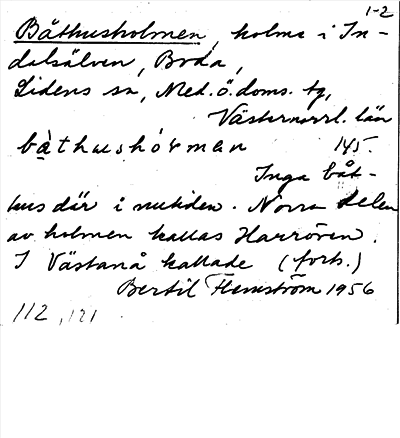 1-2
Båthusholmen, holme i In-
dalsälven, Boda,
Lidens sn, Med.ö.doms. tg,
Västernorrl. län
bàthushórman 145.
Inga båt-
hus där i nutiden. Norra delen
av holmen kallas Harrören.
I Västanå kallade (forts.)
Bertil Flemström 1956
112, 121